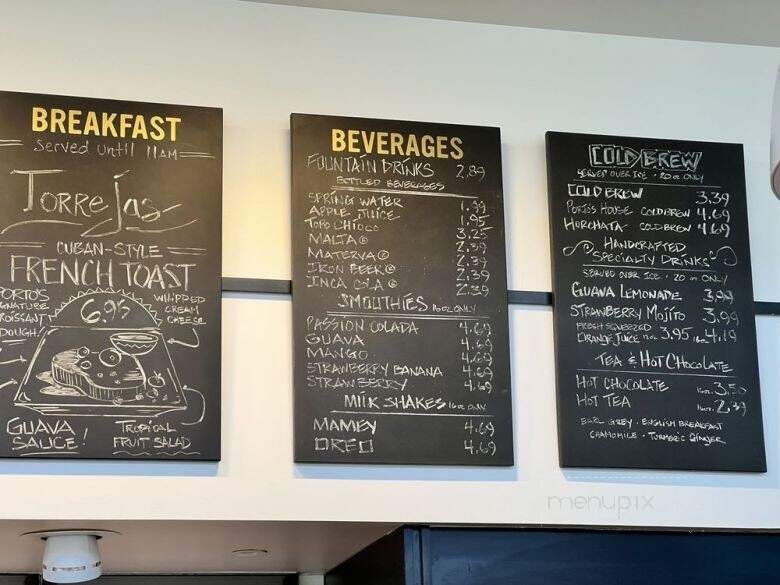 BREAKFAST
Served Until 11AM
Torrejas
CUBAN-STYLE
FRENCH TOAST
PORTO'S
SIGNATURE
CROISSANT
DOUGH!
6.95
WHIPPED
CREAM
CHEESE
GUAVA
SAUCE!
TROPICAL
FRUIT SALAD
BEVERAGES
FOUNTAIN DRINKS 2.89
BOTTLED BEVERAGES
SPRING WATER 1.99
APPLE JUICE 1.95
TOPO CHICO 3.25
MALTA 2.39
MATERVA 2.39
IRON BEER 2.39
INCA COLA 2.39
SMOOTHIES 16oz ONLY
PASSION COLADA 4.69
GUAVA 4.69
MANGO 4.69
STRAWBERRY BANANA 4.69
STRAWBERRY 4.69
MILK SHAKES 16oz ONLY
MAMEY 4.69
OREO 4.69
COLD BREW
SERVED OVER ICE • 20 oz ONLY
COLD BREW 3.39
PORTO'S HOUSE COLDBREW 4.69
HORCHATA COLDBREW 4.69
HANDCRAFTED
SPECIALTY DRINKS
SERVED OVER ICE • 20 oz ONLY
GUAVA LEMONADE 3.99
STRAWBERRY MOJITO 3.99
FRESH SQUEEZED
ORANGE JUICE 3.95 4.19
TEA & HOT CHOCOLATE
HOT CHOCOLATE 3.50
HOT TEA 2.39
EARL GREY • ENGLISH BREAKFAST
CHAMOMILE • TURMERIC GINGER
menupix